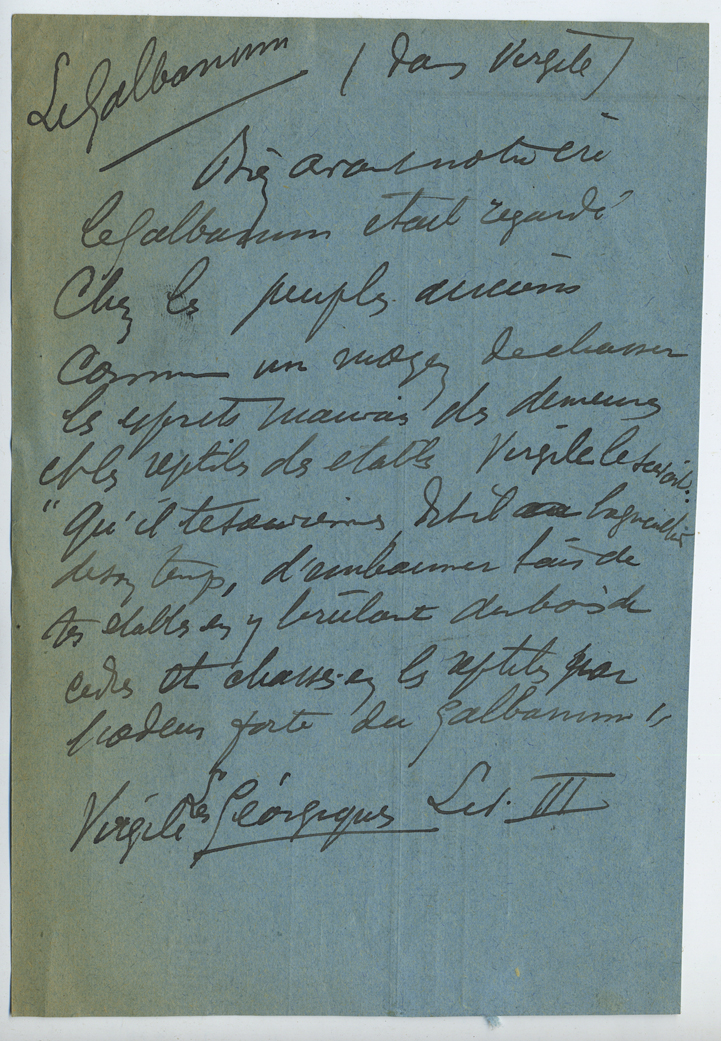 Le Galbanum (dans Virgile)
Bien avant notre ère
le Galbanum était regardé
Chez les peuples anciens
Comme un moyen de chasser
les esprits mauvais des demeures
et les reptiles des etables Virgile le
"Qu'il te souvienne, dit-il
de son temps, d'embaumer l'air de
tes etables en y brûlant du bois de
cedres et chasses-en les reptiles par
l'odeur forte du Galbanum"
Virgile Les Géorgiques Liv. III